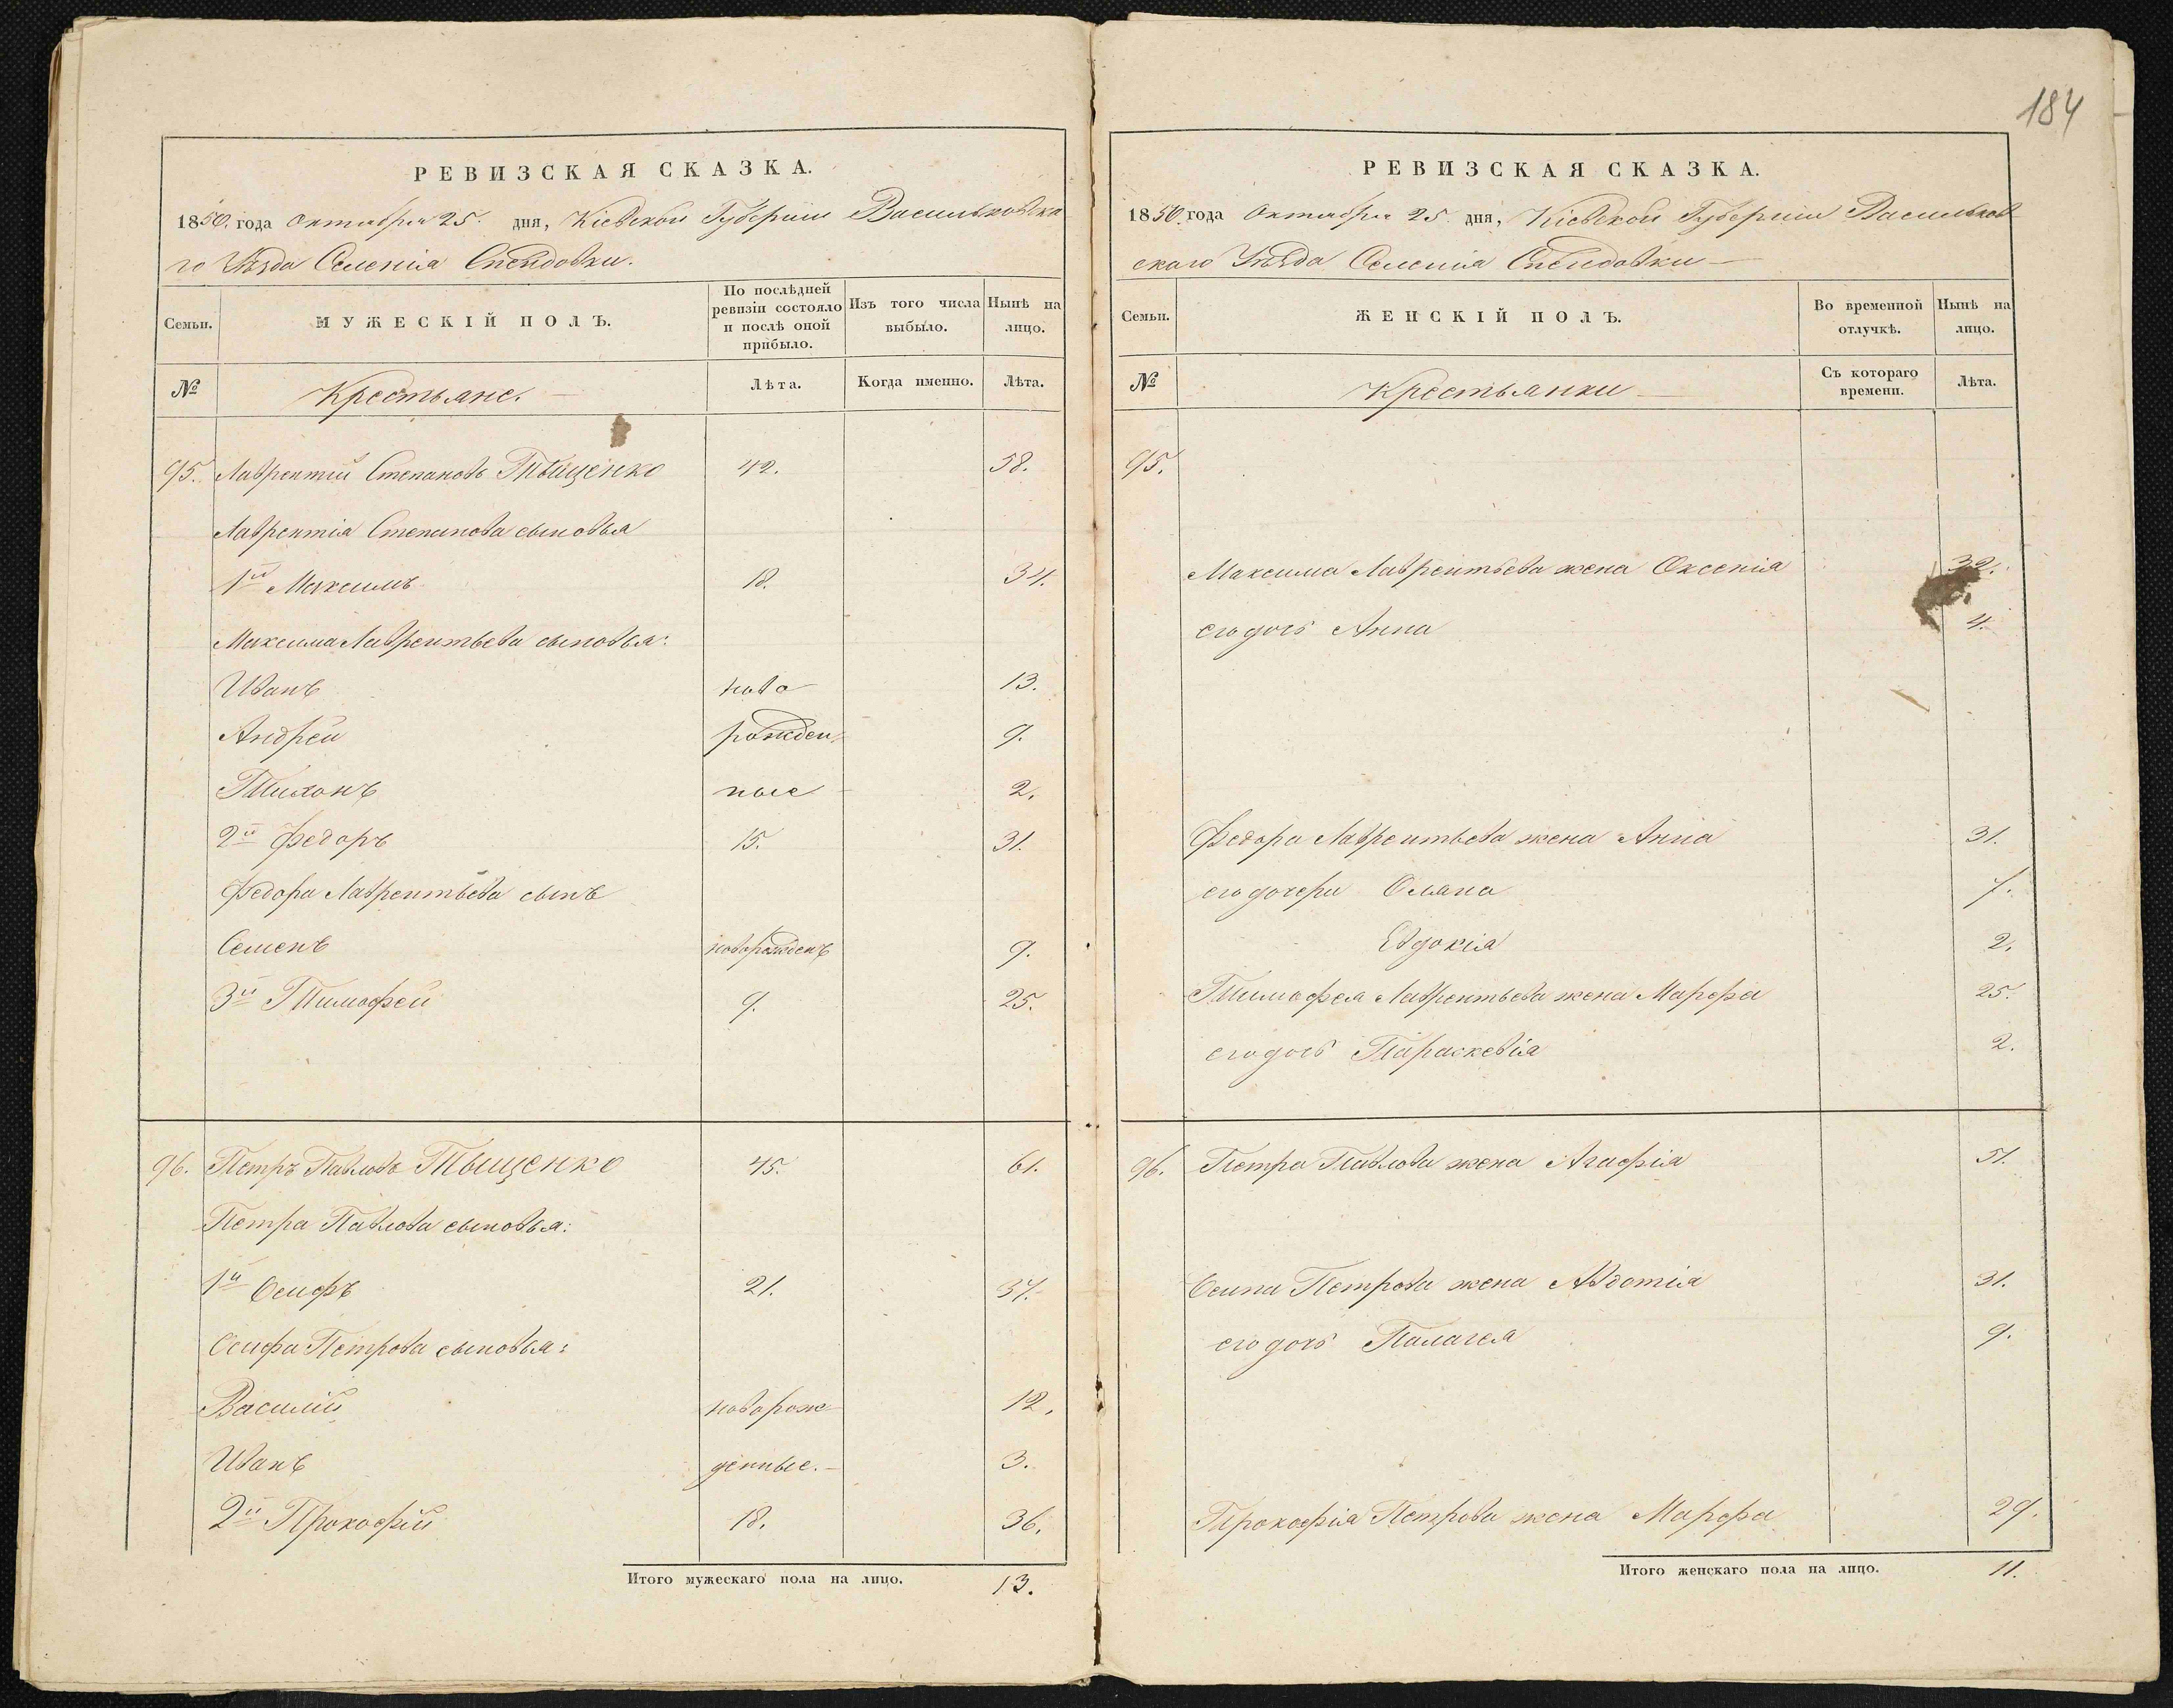 184
РЕВИЗСКАЯ СКАЗКА.
1850. года Октября 25. дня, Кіевской Губерніи Васильковска
го Уѣзда Селенія Спендовки.
Семьи. МУЖЕСКІЙ ПОЛЪ. По послѣдней ревизіи состояло и послѣ оной прибыло. Изъ того числа выбыло. Нынѣ на лицо.
№ Крестьяне. Лѣта. Когда именно. Лѣта.
95. Лаврентій Степановъ Тыщенко 42. 58.
Лаврентія Степанова сыновья
1й Максимъ 18. 34.
Максима Лаврентьева сыновья:
Иванъ ново 13.
Андрей рожден- 9.
Тихонъ ные 2.
2й Федоръ 15. 31.
Федора Лаврентьева сынъ
Семенъ новорожденъ 9.
3й Тимофей 9. 25.
96. Петръ Павловъ Тыщенко 45. 61.
Петра Павлова сыновья:
1й Осифъ 21. 37.
Осифа Петрова сыновья:
Василий новорож 12.
Иванъ денные. 3.
2й Прокофій 18. 36.
Итого мужескаго пола на лицо. 13.
РЕВИЗСКАЯ СКАЗКА.
1850. года Октября 25. дня, Кіевской Губерніи Васильков
скаго Уѣзда Селенія Спендовки
Семьи. ЖЕНСКІЙ ПОЛЪ. Во временной отлучкѣ. Нынѣ на лицо.
№ Крестьянки Съ котораго времени. Лѣта.
95.
Максима Лаврентьева жена Оксенія 32.
его дочь Анна 4.
Федора Лаврентьева жена Анна 31.
его дочери Оляна 7.
Евдокія 2.
Тимофея Лаврентьева жена Марфа 25.
его дочь Параскевія 2.
96. Петра Павлова жена Агафія 51.
Осипа Петрова жена Авдотія 31.
его дочь Палагея 9.
Прокофія Петрова жена Марфа 29.
Итого женскаго пола на лицо. 11.